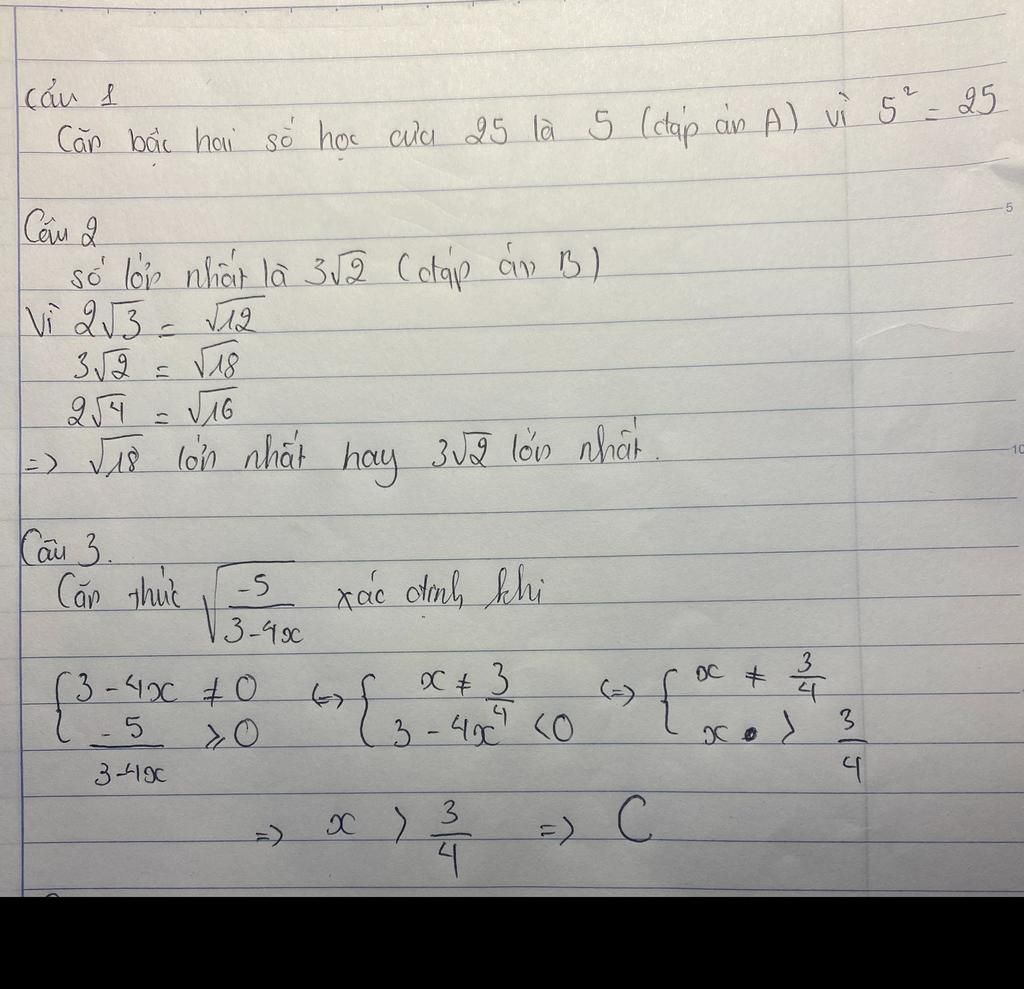 Câu 1
Căn bậc hai số học của 25 là 5 (đáp án A) vì 5² = 25
5
Câu 2
số lớn nhất là 3√2 (đáp án B)
Vì 2√3 = √12
3√2 = √18
2√4 = √16
=> √18 lớn nhất hay 3√2 lớn nhất.
10
Câu 3.
Căn thức √(-5/(3-4x)) xác định khi
{3-4x ≠ 0; -5/(3-4x) ≥ 0 <=> {x ≠ 3/4; 3-4x < 0 <=> {x ≠ 3/4; x > 3/4
=> x > 3/4 => C